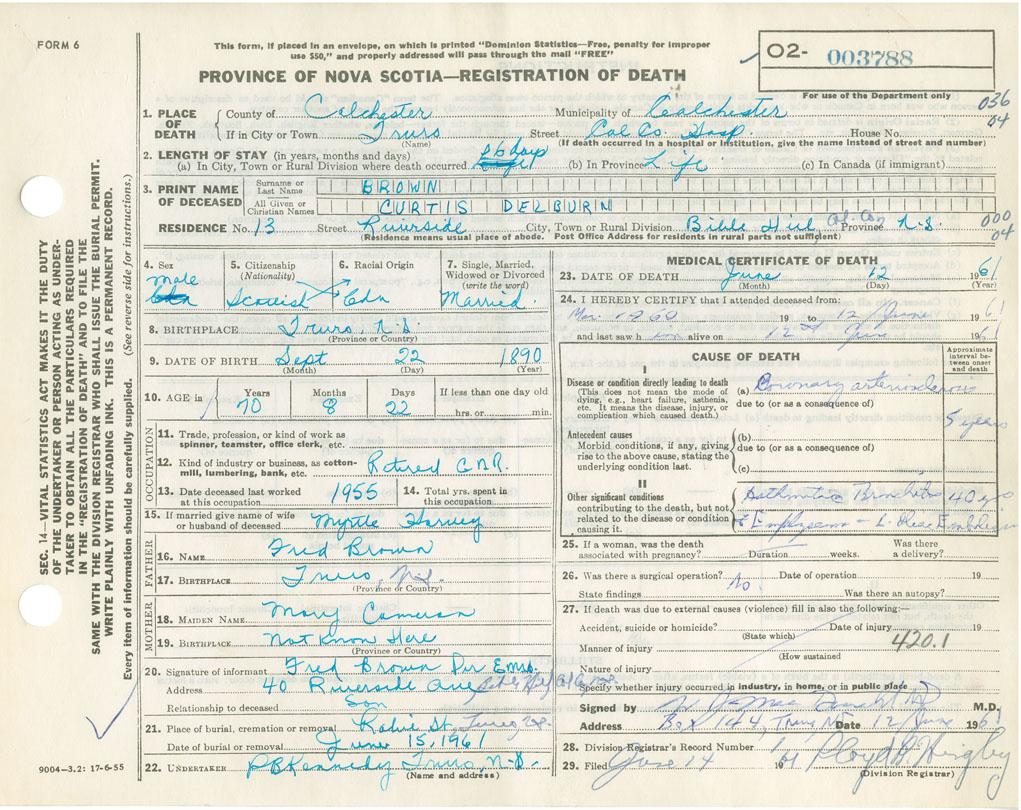 FORM 6
This form, if placed in an envelope, on which is printed "Dominion Statistics—Free, penalty for improper
use $50," and properly addressed will pass through the mail "FREE"
O2- 003788
For use of the Department only
PROVINCE OF NOVA SCOTIA—REGISTRATION OF DEATH
036
04
1. PLACE OF DEATH
County of Colchester Municipality of Colchester
If in City or Town Truro Street Col. Co. Hosp House No.
(Name) (If death occurred in a hospital or institution, give the name instead of street and number)
2. LENGTH OF STAY (in years, months and days)
(a) In City, Town or Rural Division where death occurred 86 days (b) In Province Life (c) In Canada (if immigrant)
3. PRINT NAME OF DECEASED
Surname or Last Name BROWN
All Given or Christian Names CURTIS DELBURN
RESIDENCE No. 13 Street Riverside City, Town or Rural Division Bible Hill Col. Con Province N.S. 000
04
(Residence means usual place of abode. Post Office Address for residents in rural parts not sufficient)
4. Sex Male
5. Citizenship (Nationality) Scottish
6. Racial Origin Cdn
7. Single, Married, Widowed or Divorced (write the word) Married.
8. BIRTHPLACE Truro, N.S.
(Province or Country)
9. DATE OF BIRTH Sept 22 1890
(Month) (Day) (Year)
10. AGE in Years Months Days If less than one day old
70 8 22 hrs. or min.
OCCUPATION
11. Trade, profession, or kind of work as spinner, teamster, office clerk, etc.
12. Kind of industry or business, as cotton-mill, lumbering, bank, etc. Retired C.N.R.
13. Date deceased last worked at this occupation 1955
14. Total yrs. spent in this occupation.
15. If married give name of wife or husband of deceased Myrtle Harvey
FATHER
16. NAME Fred Brown
17. BIRTHPLACE Truro, N.S.
(Province or Country)
MOTHER
18. MAIDEN NAME Mary Cameron
19. BIRTHPLACE Not Known Here
(Province or Country)
20. Signature of informant Fred Brown Per
Address 40 Riverside Ave
Relationship to deceased Son
21. Place of burial, cremation or removal Robie St.
Date of burial or removal June 15, 1961
22. UNDERTAKER P B Kennedy Truro, N.S.
(Name and address)
MEDICAL CERTIFICATE OF DEATH
23. DATE OF DEATH June 12 1961
(Month) (Day) (Year)
24. I HEREBY CERTIFY that I attended deceased from:
Mar. 1960 19 to 12 / June 1961
and last saw him alive on 12 June 1961
CAUSE OF DEATH
Approximate interval between onset and death
I
Disease or condition directly leading to death
(This does not mean the mode of dying, e.g., heart failure, asthenia, etc. It means the disease, injury, or complication which caused death.)
(a) Coronary arteriosclerosis
due to (or as a consequence of)
5 years
Antecedent causes
Morbid conditions, if any, giving rise to the above cause, stating the underlying condition last.
(b)
due to (or as a consequence of)
(c)
II
Other significant conditions
contributing to the death, but not related to the disease or condition causing it.
Asthmatic Bronchitis 40 yrs
25. If a woman, was the death associated with pregnancy? Duration weeks. Was there a delivery?
26. Was there a surgical operation? No. Date of operation 19
State findings Was there an autopsy?
27. If death was due to external causes (violence) fill in also the following:—
Accident, suicide or homicide? Date of injury 19
(State which)
420.1
Manner of injury
(How sustained
Nature of injury
Specify whether injury occurred in industry, in home, or in public place
Signed by M.D.
Address Box 144, Truro NS Date 12 / June 1961
28. Division Registrar's Record Number
29. Filed June 14 1961
(Division Registrar)
9004—3.2: 17-6-55
SEC. 14—VITAL STATISTICS ACT MAKES IT THE DUTY
OF THE UNDERTAKER OR PERSON ACTING AS UNDER-
TAKER TO OBTAIN ALL THE PARTICULARS REQUIRED
IN THE "REGISTRATION OF DEATH" AND TO FILE THE
SAME WITH THE DIVISION REGISTRAR WHO SHALL ISSUE THE BURIAL PERMIT.
WRITE PLAINLY WITH UNFADING INK. THIS IS A PERMANENT RECORD.
Every item of information should be carefully supplied. (See reverse side for instructions.)